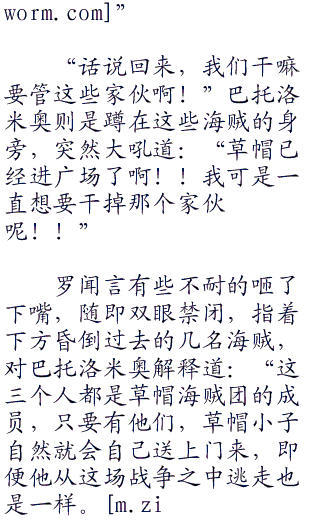 worm.com]”
“话说回来，我们干嘛
要管这些家伙啊！”巴托洛
米奥则是蹲在这些海贼的身
旁，突然大吼道：“草帽已
经进广场了啊！！我可是一
直想要干掉那个家伙
呢！！”
罗闻言有些不耐的咂了
下嘴，随即双眼禁闭，指着
下方昏倒过去的几名海贼，
对巴托洛米奥解释道：“这
三个人都是草帽海贼团的成
员，只要有他们，草帽小子
自然就会自己送上门来，即
便他从这场战争之中逃走也
是一样。[m.zi